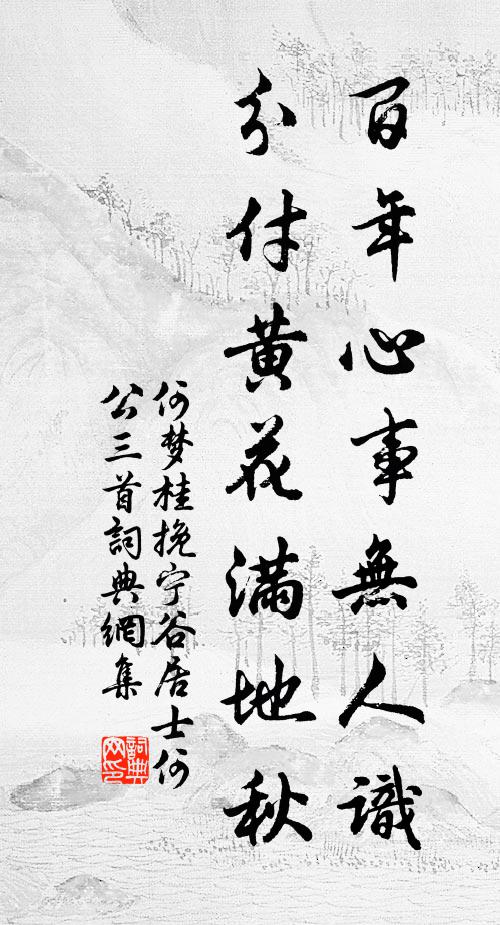 百年心事無人識
分付黃花滿地秋
何梦桂挽宁谷居士何
公三首詞典網集